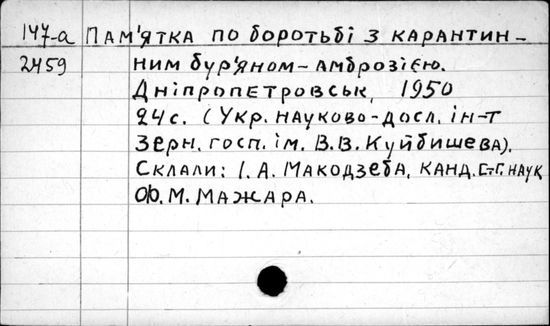 147-а ПАМ'ЯТКА ПО БОРОТЬБІ З КАРАНТИН-
2459 НИМ БУР'ЯНОМ-АМБРОЗІЄЮ.
ДНІПРОПЕТРОВСЬК, 1950
24 с. (УКР. НАУКОВО-ДОСЛ. ІН-Т
ЗЕРН. ГОСП. ІМ. В.В. КУЙБИШЕВА).
СКЛАЛИ: І. А. МАКОДЗЕБА, КАНД. С-Г. НАУК
Ф. М. МАЖАРА.